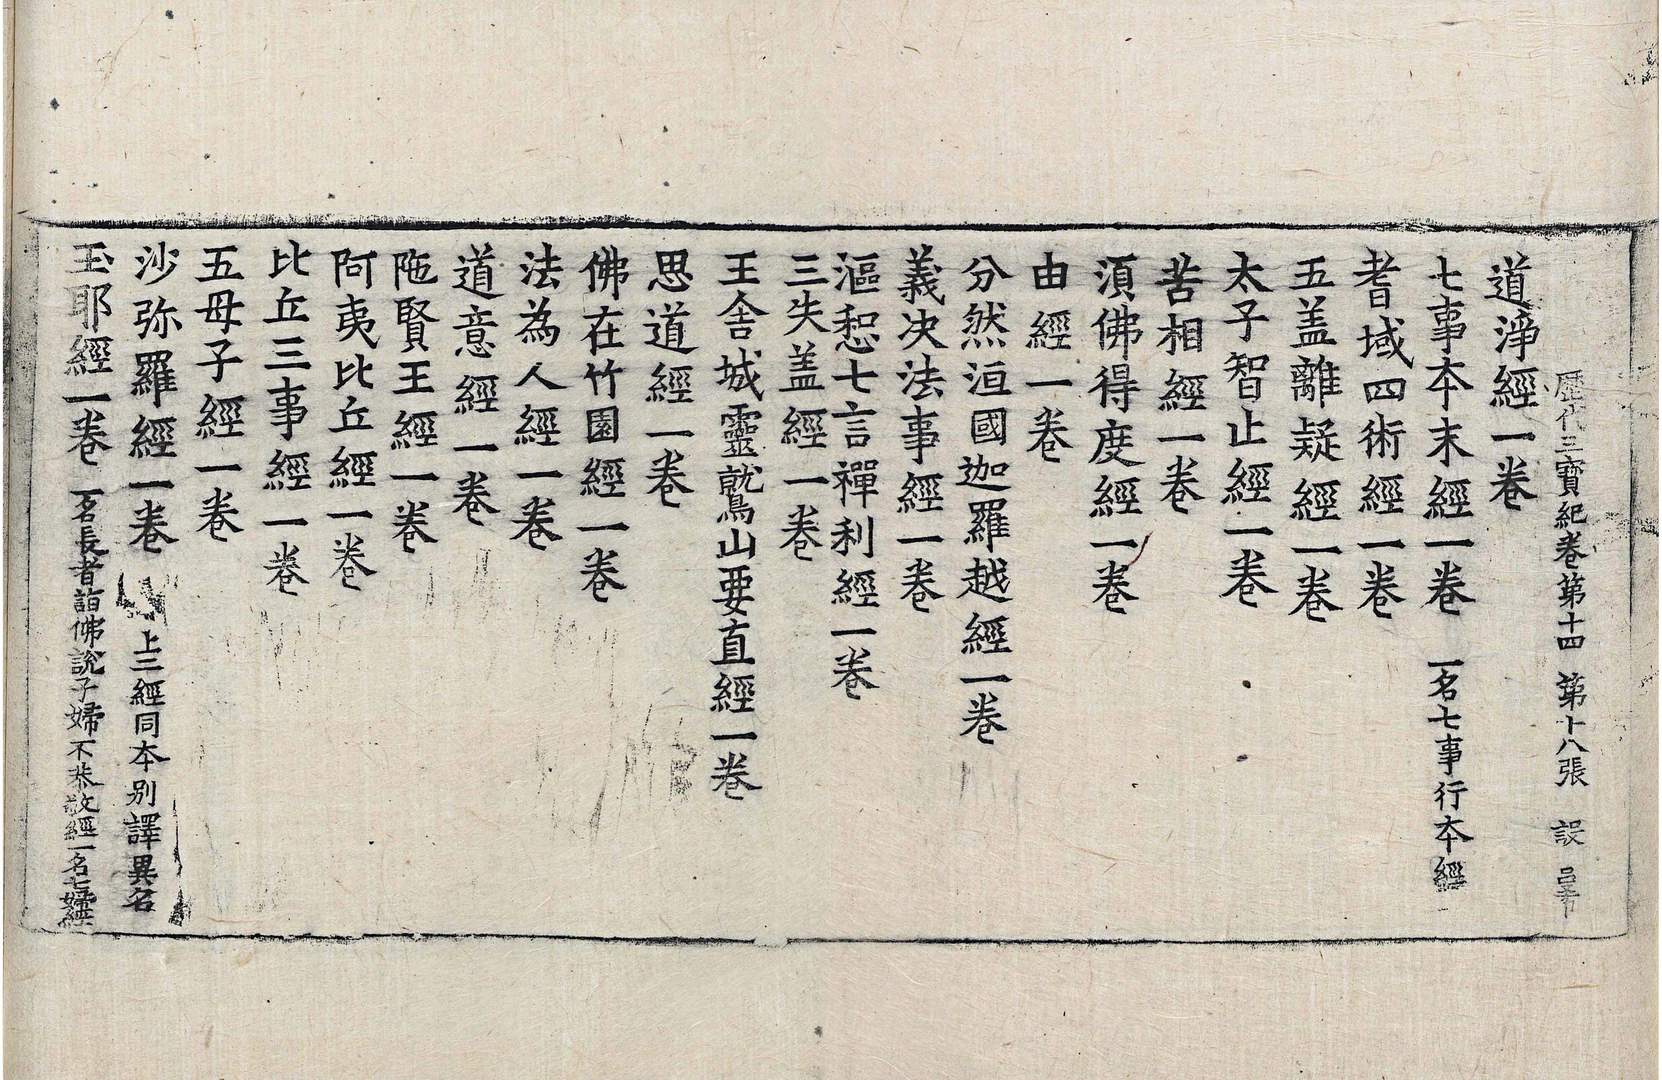 歷代三寶紀卷第十四 第十八張 設
道淨經一卷
七事本末經一卷 一名七事行本經
耆域四術經一卷
五盖離疑經一卷
太子智止經一卷
苦相經一卷
湏佛得度經一卷
由經一卷
分然洹國迦羅越經一卷
義决法事經一卷
漚惒七言禪利經一卷
三失盖經一卷
王舍城靈鷲山要直經一卷
思道經一卷
佛在竹園經一卷
法為人經一卷
道意經一卷
陁賢王經一卷
阿夷比丘經一卷
比丘三事經一卷
五母子經一卷
沙弥羅經一卷 上二經同本別譯異名
玉耶經一卷 一名長者詣佛說子婦不恭敬經一名七婦經